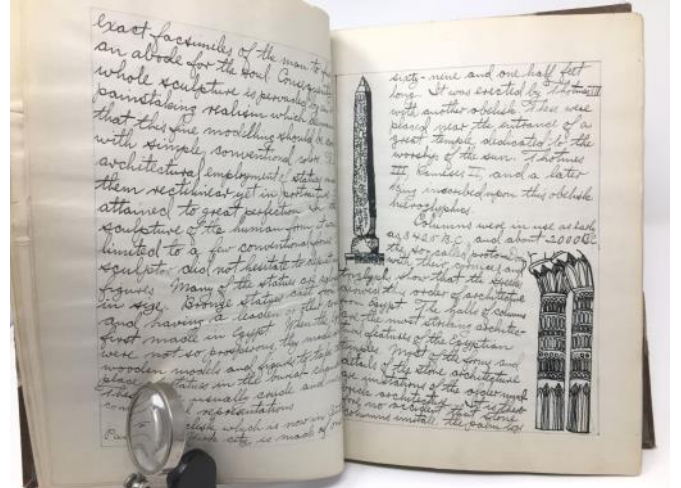 exact facsimiles of the man to
an abode for the soul Consequently
whole sculpture is pervaded by
painstaking realism which
that this fine modelling should be
with simple, conventional
architectural employment of statues
them rectilinear yet in portraiture
attained to great perfection in
sculpture of the human form, it was
limited to a few conventional
sculptor did not hesitate to
figures. Many of the statues are
in size. Bronze statues cast
and having a leaden or other core
first made in Egypt When the
were not so prosperous, they made
wooden models and figures to take the
place statues in the burial
These usually crude and
representations
which is now in
city is made of one
sixty-nine and one half feet
long. It was erected by Thotmes III
with another obelisk. These were
placed near the entrance of a
great temple, dedicated to the
worship of the sun. Thotmes
III, Rameses II, and a later
King inscribed upon this obelisk
hieroglyphics.
Columns were in use as early
as 3425 B.C. and about 2000 B.C.
the so-called proto-Doric
with their cornices and
show that the Greeks
derived this order of architecture
from Egypt The halls of columns
are the most striking architec-
tural features of the Egyptian
temples. Most of the forms and
details of the stone architecture
are imitations of the older wood
brick architecture. It is there-
fore no accident that stone
columns imitate the palm